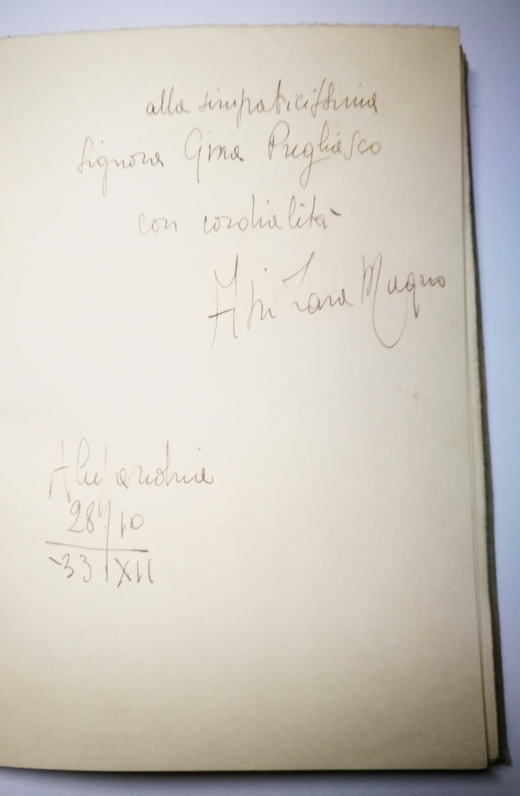 alla simpaticissima
Signora Gina Pregliasco
con cordialità
Zara Magno
Alessandria
28 10
33 XII